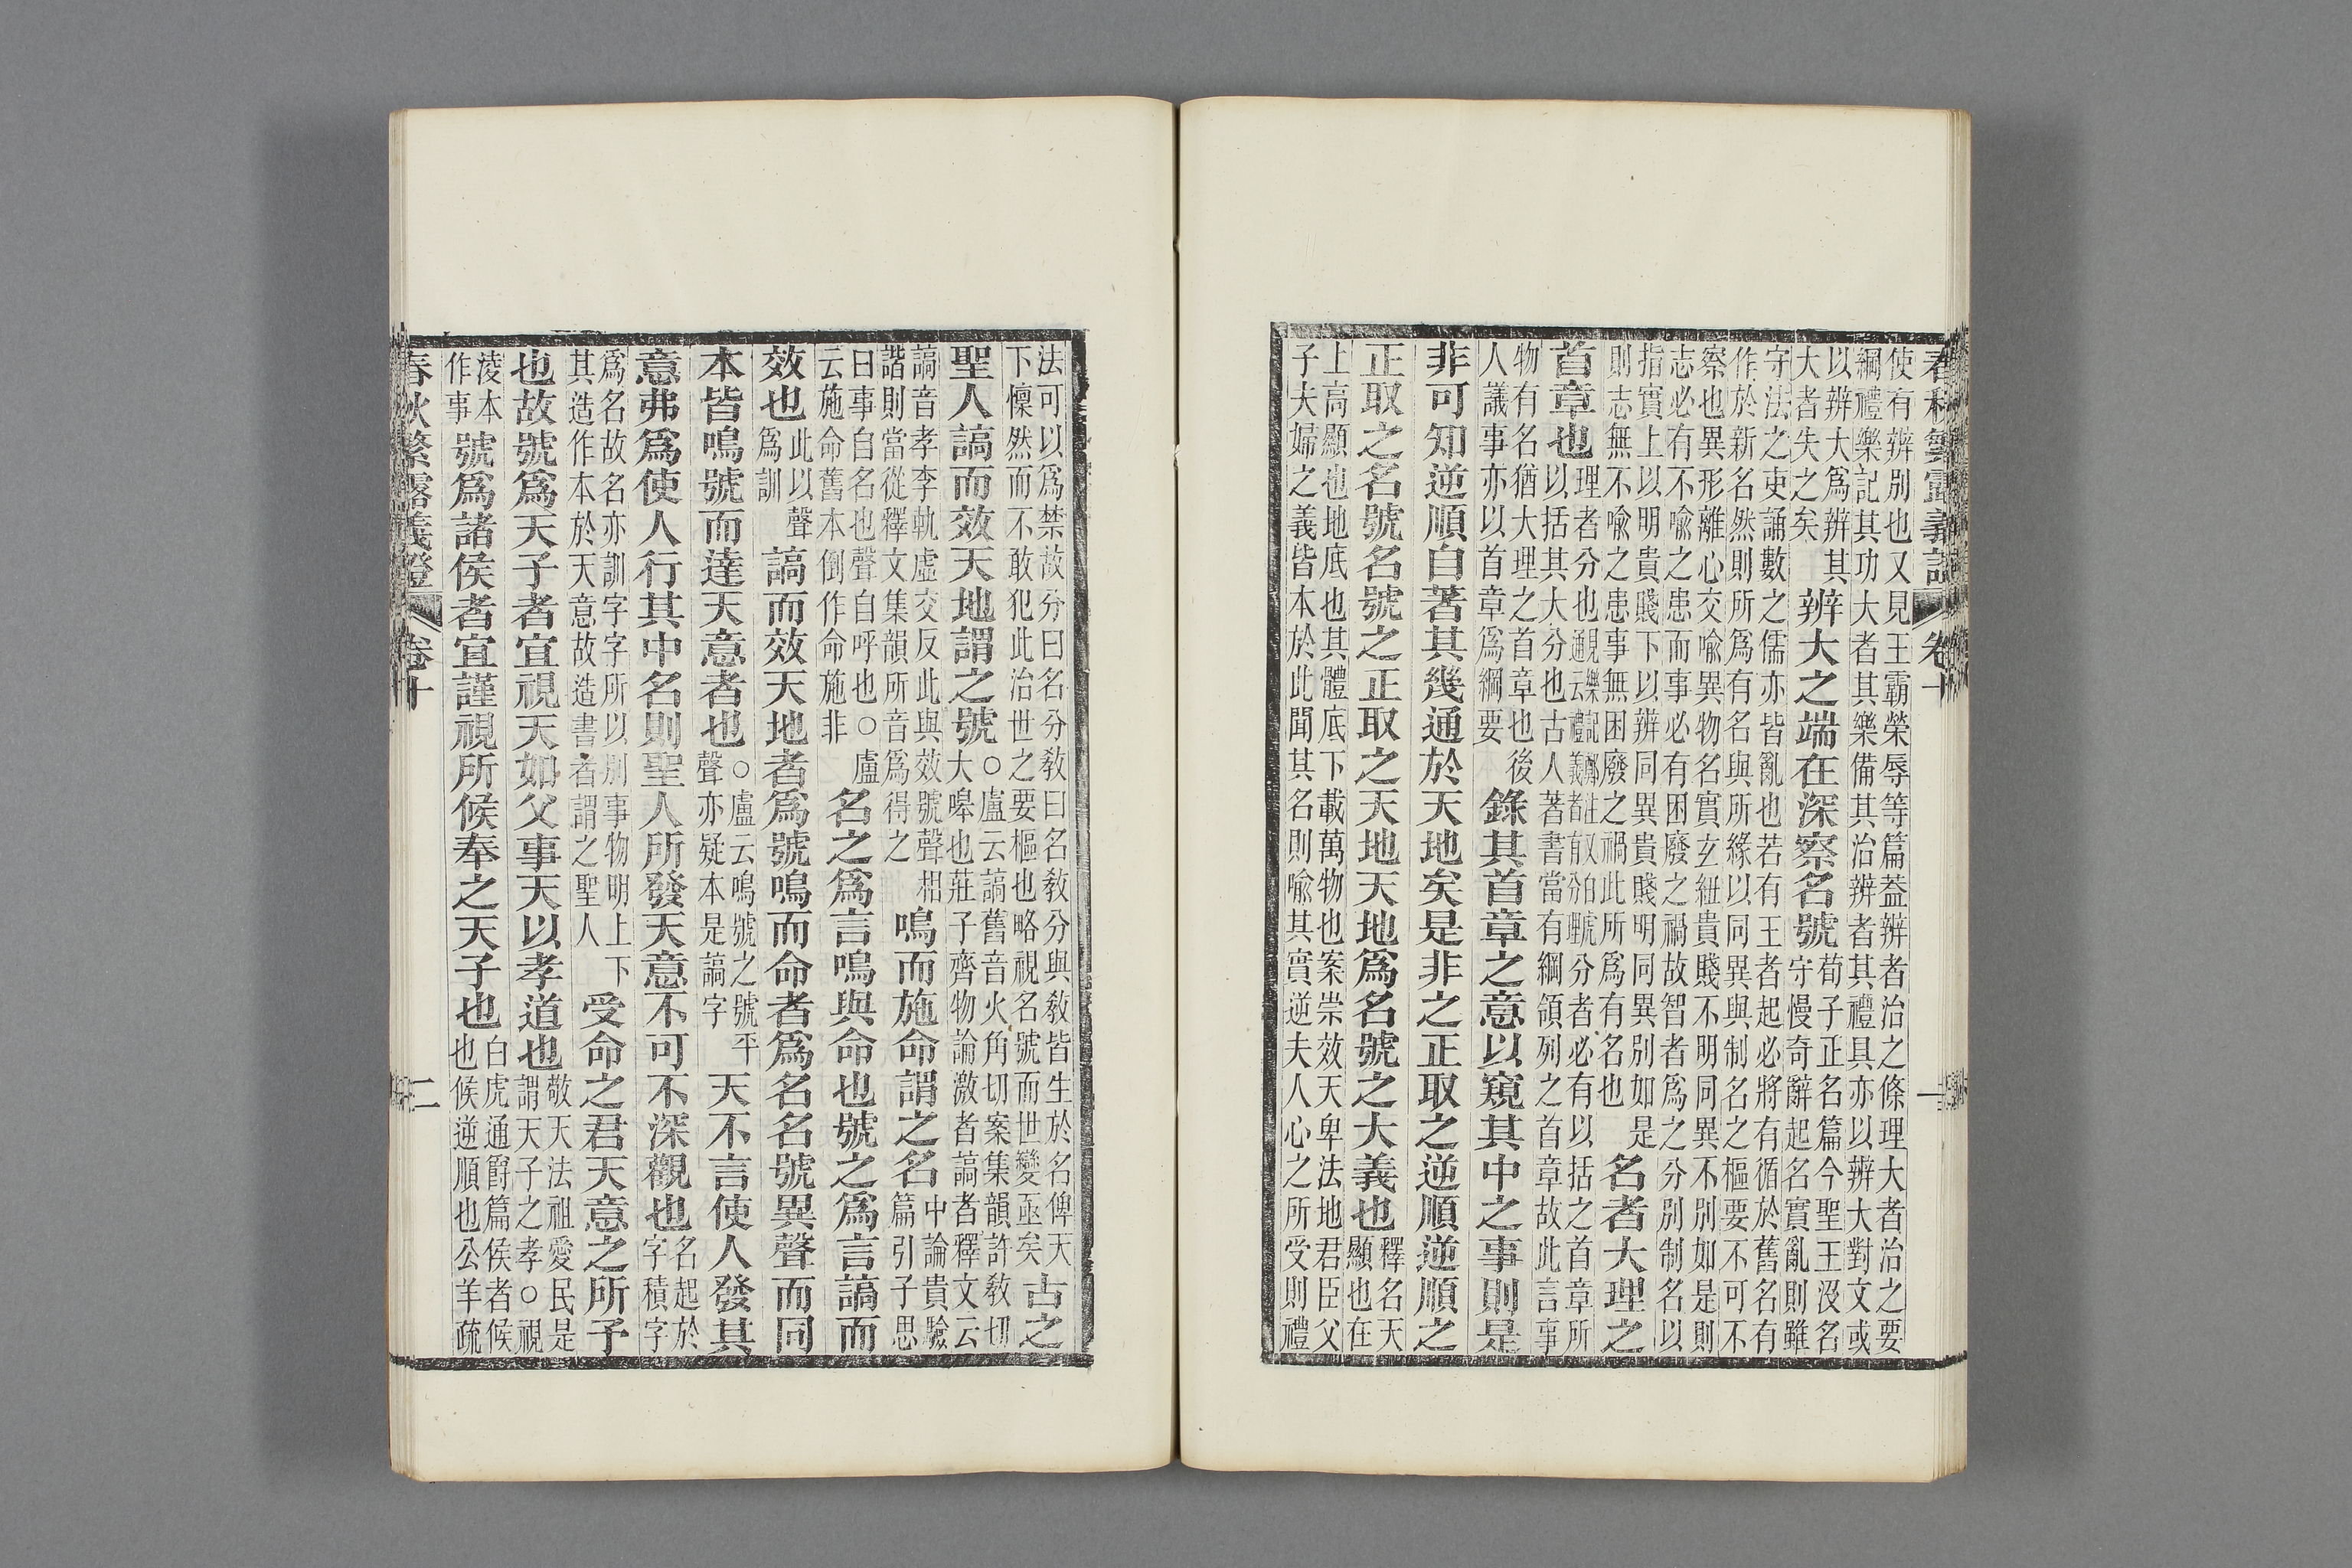 春秋繁露義證 卷十 一
使有辨別也又見王霸榮辱等篇蓋辨者治之條理大者治之要
綱禮樂記其功大者其樂備其治辨者其禮具亦以辨大對文或
以辨大爲辨其
大者失之矣
辨大之端在深察名號
荀子正名篇今聖王沒名
守慢奇辭起名實亂則雖
守法之吏誦數之儒亦皆亂也若有王者起必將有循於舊名有
作於新名然則所爲有名與所緣以同異與制名之樞要不可不
察也異形離心交喻異物名實玄紐貴賤不明同異不別如是則
志必有不喻之患而事必有困廢之禍故智者爲之分別制名以
指實上以明貴賤下以辨同異貴賤明同異別如是
則志無不喻之患事無困廢之禍此所爲有名也
名者大理之
首章也
理者分也見樂記鄭注又白虎通云禮義者有分理分者必有以括之首章所
以括其大分也古人著書當有綱領列之首章故此言事
物有名猶大理之首章也後
人議事亦以首章爲綱要
錄其首章之意以窺其中之事則是
非可知逆順自著其幾通於天地矣是非之正取之逆順逆順之
正取之名號名號之正取之天地天地爲名號之大義也
釋名天
顯也在
上高顯也地底也其體底下載萬物也案崇效天卑法地君臣父
子夫婦之義皆本於此聞其名則喻其實逆夫人心之所受則禮
法可以爲禁故分曰名分敎曰名敎分與敎皆生於名俾天
下懍然而不敢犯此治世之要樞也略視名號而世變亟矣
古之
聖人謞而效天地謂之號
○盧云謞舊音火角切案集韻許敎切
大嘷也莊子齊物論激者謞者釋文云
謞音孝李軌虛交反此與效號聲相
諧則當從釋文集韻所音爲得之
鳴而施命謂之名
中論貴驗
篇引子思
曰事自名也聲自呼也○盧
云施命舊本倒作命施非
名之爲言鳴與命也號之爲言謞而
效也
此以聲
爲訓
謞而效天地者爲號鳴而命者爲名名號異聲而同
本皆鳴號而達天意者也
○盧云鳴號之號平
聲亦疑本是謞字
天不言使人發其
意弗爲使人行其中名則聖人所發天意不可不深觀也
名起於
字積字
爲名故名亦訓字字所以別事物明上下
其造作本於天意故造書者謂之聖人
受命之君天意之所予
也故號爲天子者宜視天如父事天以孝道也
敬天法祖愛民是
謂天子之孝○視
淩本
作事
號爲諸侯者宜謹視所候奉之天子也
白虎通爵篇侯者候
也候逆順也公羊疏
春秋繁露義證 卷十 二